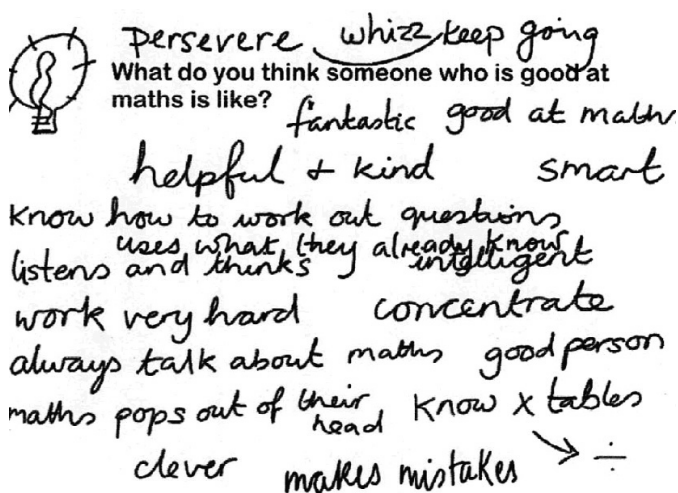 persevere whizz keep going
What do you think someone who is good at
maths is like?
fantastic good at maths
helpful + kind smart
know how to work out questions
uses what they already know
listens and thinks intelligent
work very hard concentrate
always talk about maths good person
maths pops out of their head know x tables
→ ÷
clever makes mistakes